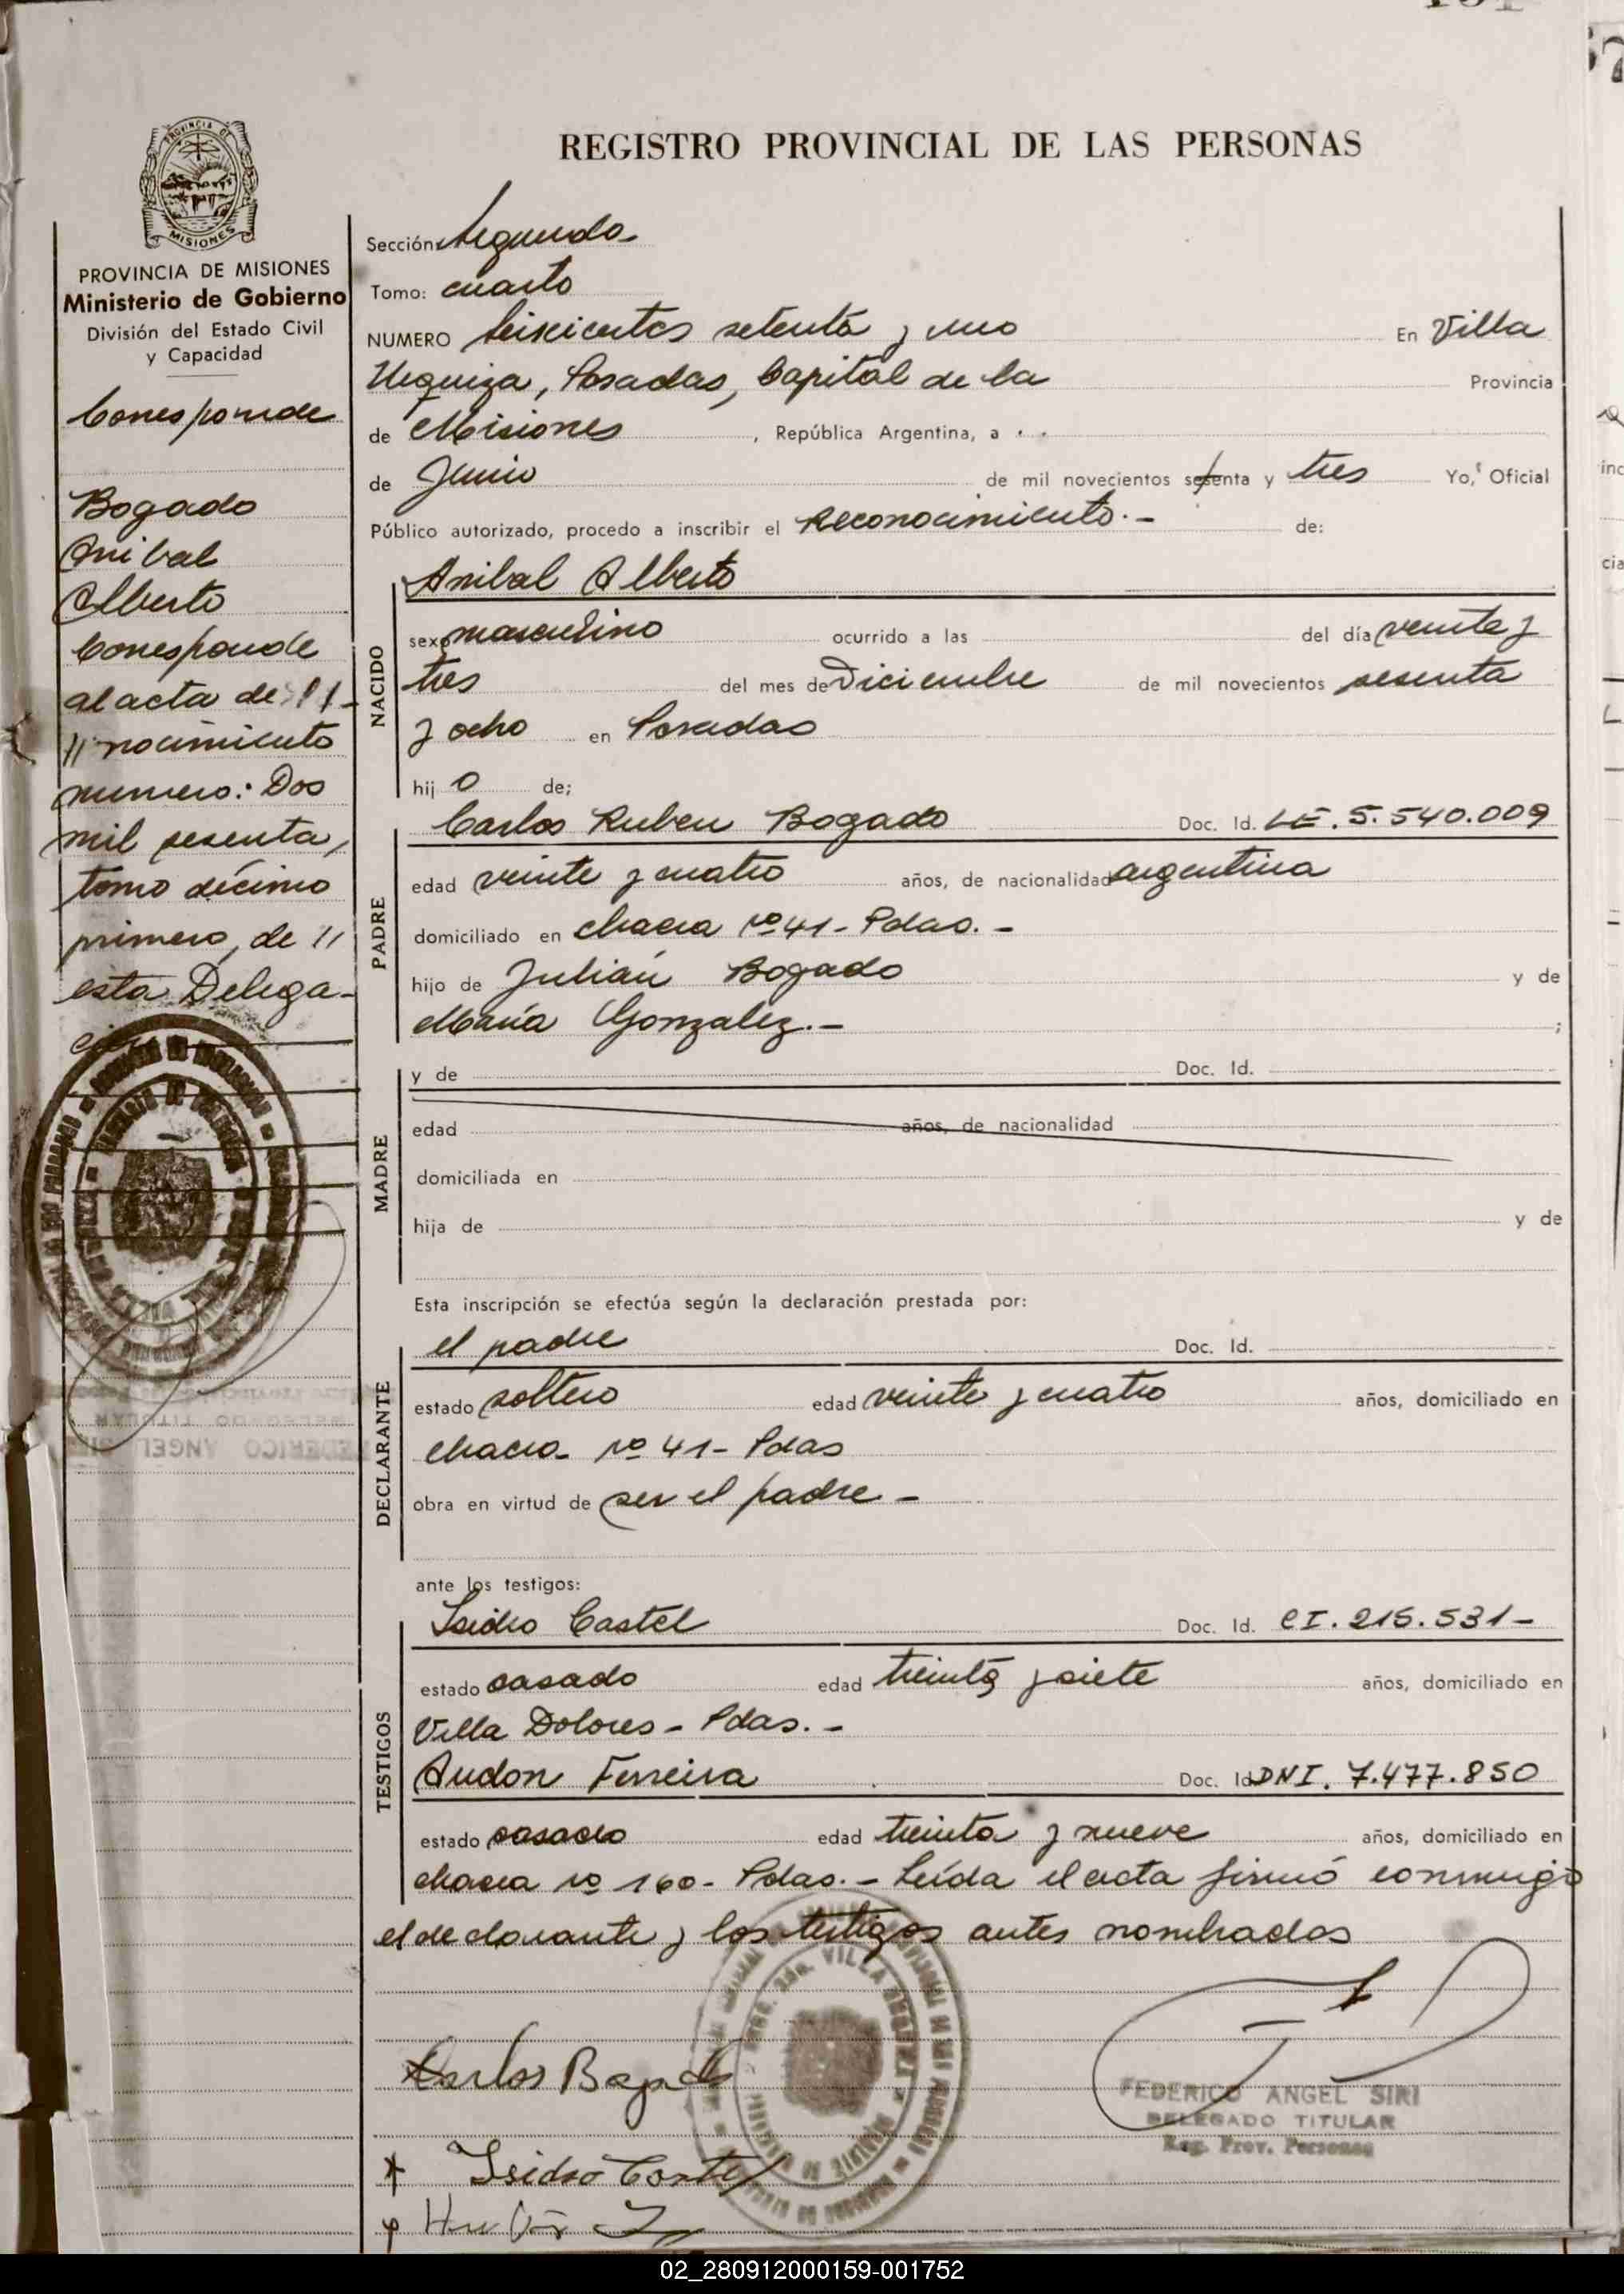 REGISTRO PROVINCIAL DE LAS PERSONAS
PROVINCIA DE
MISIONES
PROVINCIA DE MISIONES
Ministerio de Gobierno
División del Estado Civil
y Capacidad
Corresponde
Bogado
Anibal
Alberto
Corresponde
al acta de
// nacimiento
numero: Dos
mil sesenta,
tomo décimo
primero, de //
esta Delega-
ción
Sección: Segunda
Tomo: cuarto
NUMERO seiscientos setenta y uno En Villa
Urquiza, Posadas, Capital de la Provincia
de Misiones , República Argentina, a
de Junio de mil novecientos setenta y tres Yo, Oficial
Público autorizado, procedo a inscribir el Reconocimiento.- de:
NACIDO
Anibal Alberto
sexo masculino ocurrido a las del día veinte y
tres del mes de Diciembre de mil novecientos sesenta
y ocho en Posadas
hij o de;
PADRE
Carlos Ruben Bogado Doc. Id. LE. 5.540.009
edad veinte y cuatro años, de nacionalidad argentina
domiciliado en chacra nº 41 - Pdas. -
hijo de Julián Bogado y de
María Gonzalez. - ;
MADRE
y de Doc. Id.
edad años, de nacionalidad
domiciliada en
hija de y de
Esta inscripción se efectúa según la declaración prestada por:
DECLARANTE
el padre Doc. Id.
estado soltero edad veinte y cuatro años, domiciliado en
chacra nº 41 - Pdas
obra en virtud de ser el padre -
ante los testigos:
TESTIGOS
Isidro Castel Doc. Id. CI. 215.531 -
estado casado edad treinta y siete años, domiciliado en
Villa Dolores - Pdas. -
Audon Ferreira Doc. Id DNI. 7.477.850
estado casado edad treinta y nueve años, domiciliado en
chacra nº 160 - Pdas. - Leída el acta firmó conmigo
el declarante y los testigos antes nombrados
Carlos Bogado
Isidro Castel
FEDERICO ANGEL SIRI
DELEGADO TITULAR
Reg. Prov. Personas
02_280912000159-001752